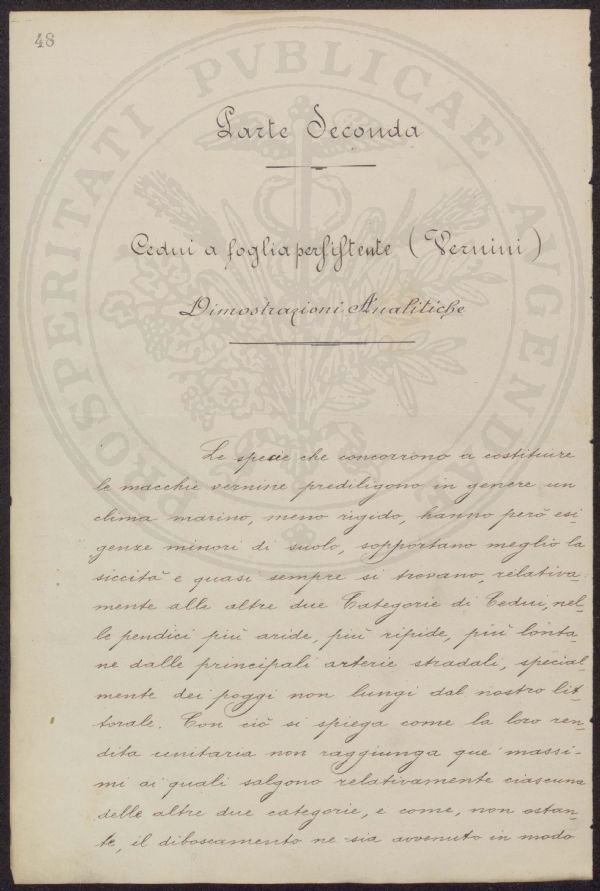 48
PROSPERITATI PVBLICAE AVGENDAE
Parte Seconda
Cedui a foglia persistente (Vernini)
Dimostrazioni Analitiche
Le specie che concorrono a costituire
le macchie vernine prediligono in genere un
clima marino, meno rigido, hanno però esi-
genze minori di suolo, sopportano meglio la
siccità e quasi sempre si trovano, relativa-
mente alle altre due Categorie di Cedui, nel-
le pendici più aride, più ripide, più lonta-
ne dalle principali arterie stradali, special-
mente dei poggi non lungi dal nostro lit-
torale. Con ciò si spiega come la loro ren-
dita unitaria non raggiunga que' massi-
mi ai quali salgono relativamente ciascuna
delle altre due categorie, e come, non ostan-
te, il diboscamento ne sia avvenuto in modo